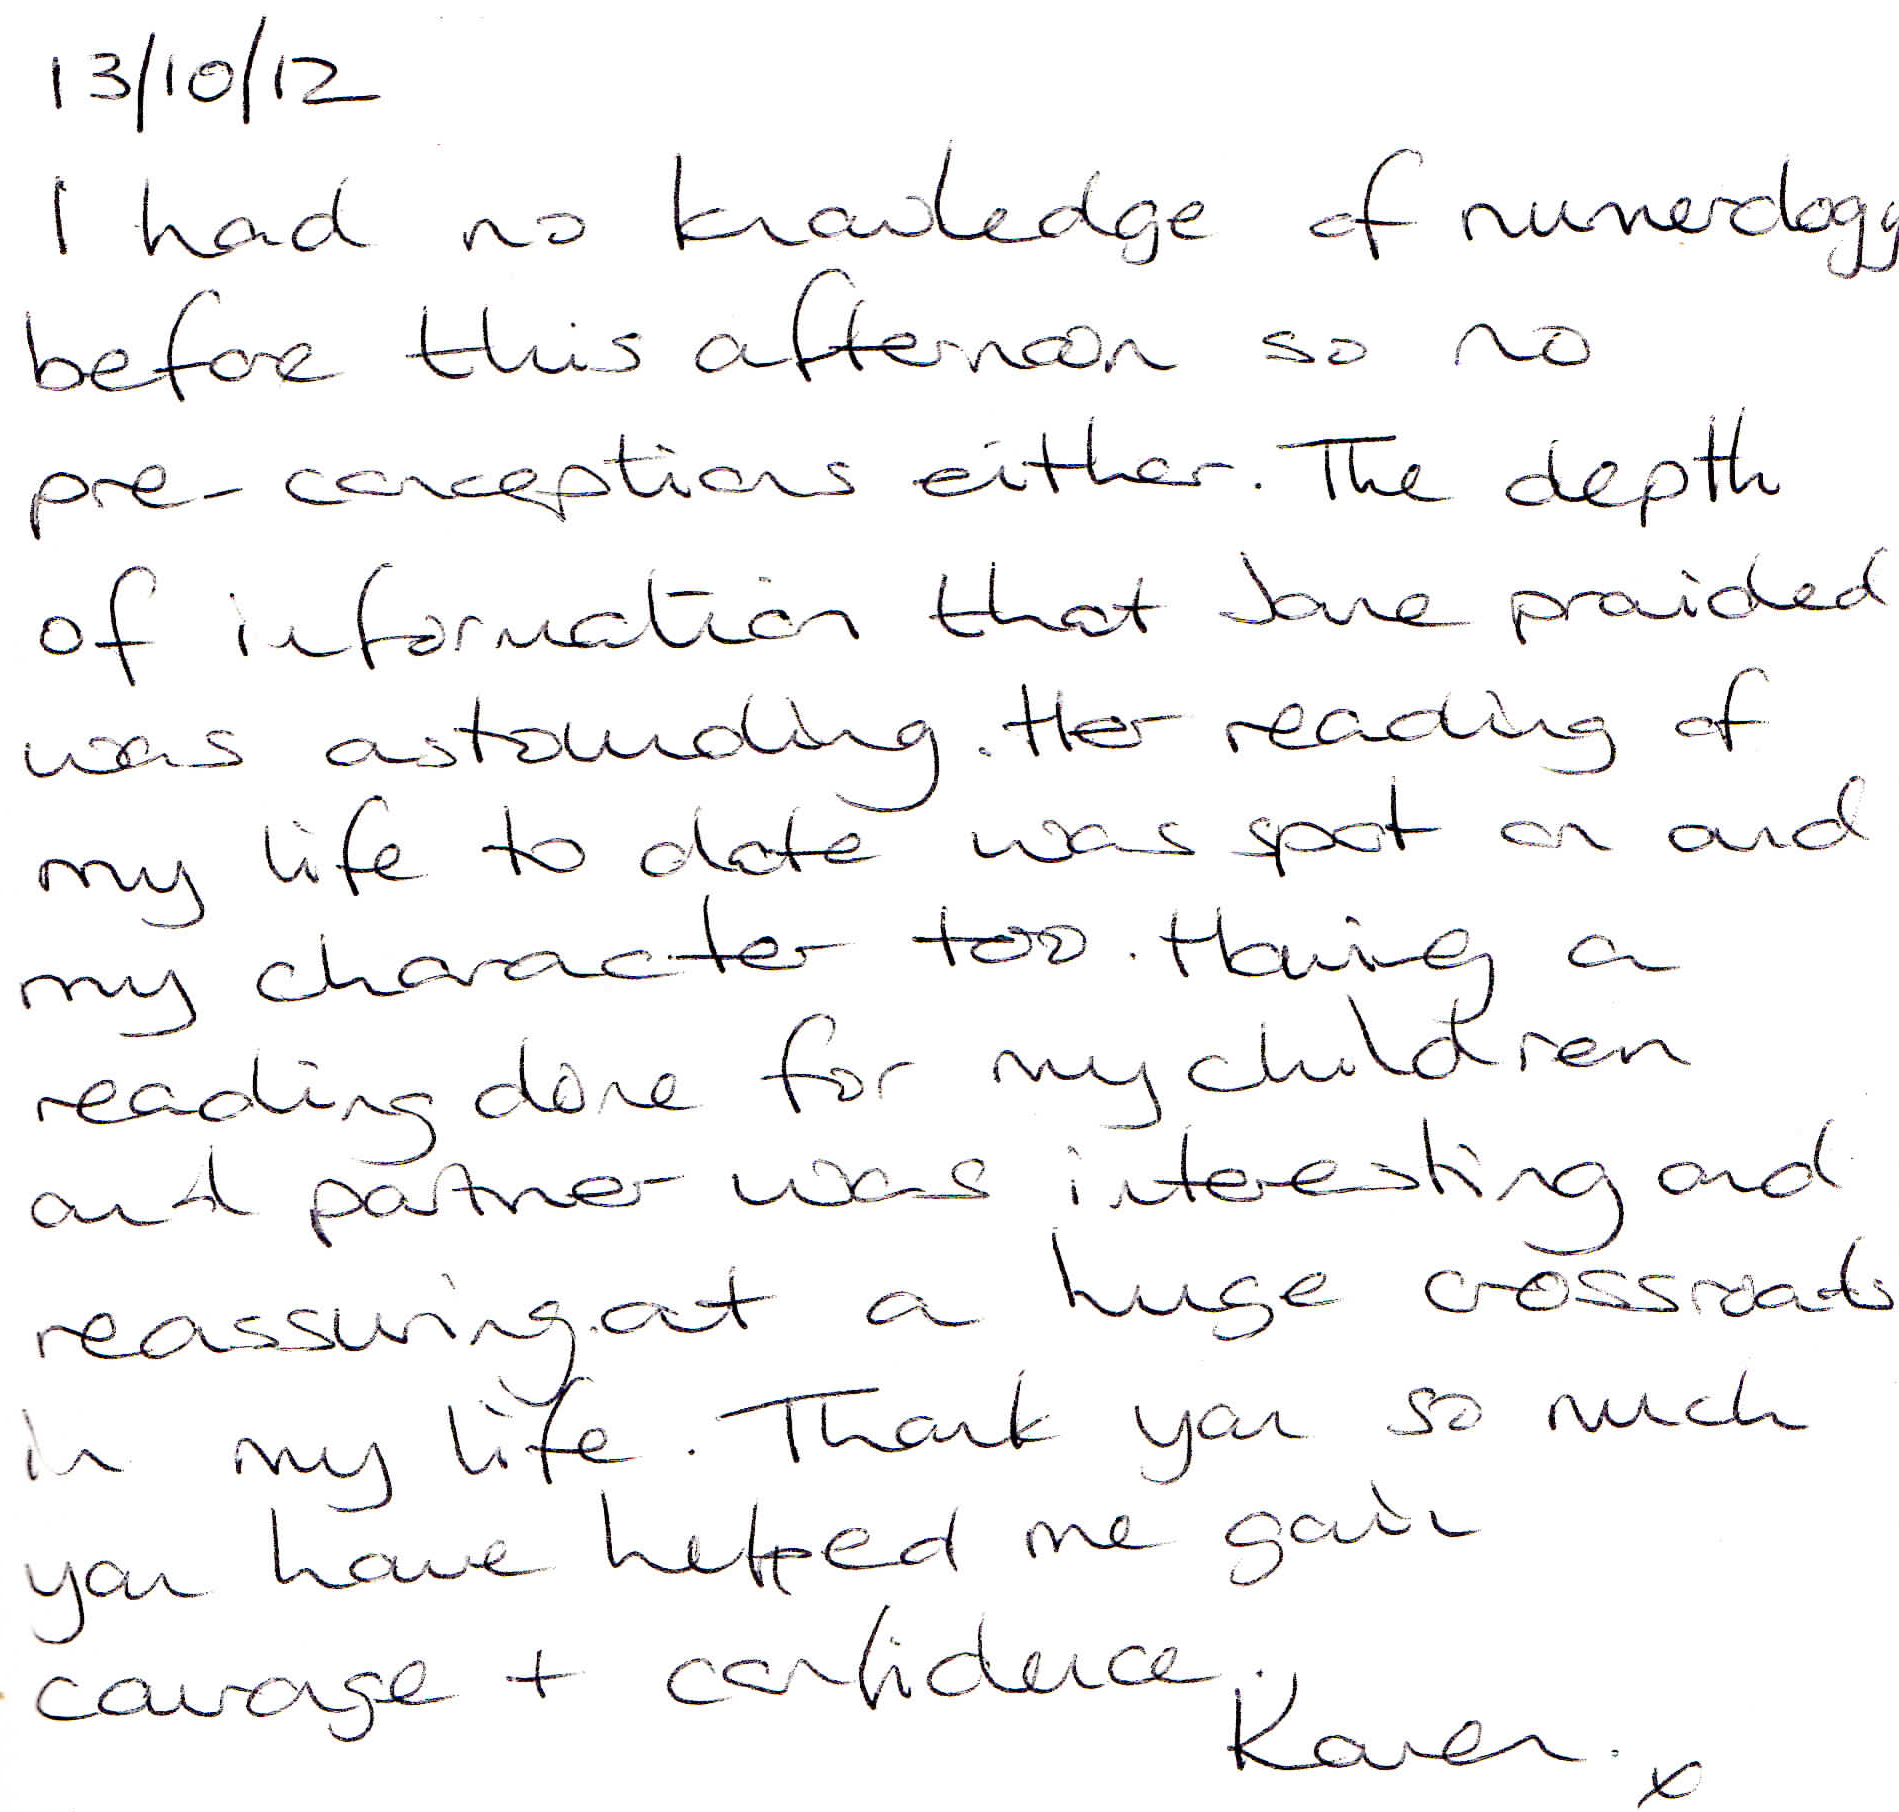 13/10/12
I had no knowledge of numerology
before this afternoon so no
pre-conceptions either. The depth
of information that Jane provided
was astounding. Her reading of
my life to date was spot on and
my character too. Having a
reading done for my children
and partner was interesting and
reassuring.at a huge crossroads
in my life. Thank you so much
you have helped me gain
courage + confidence.
Karen. x